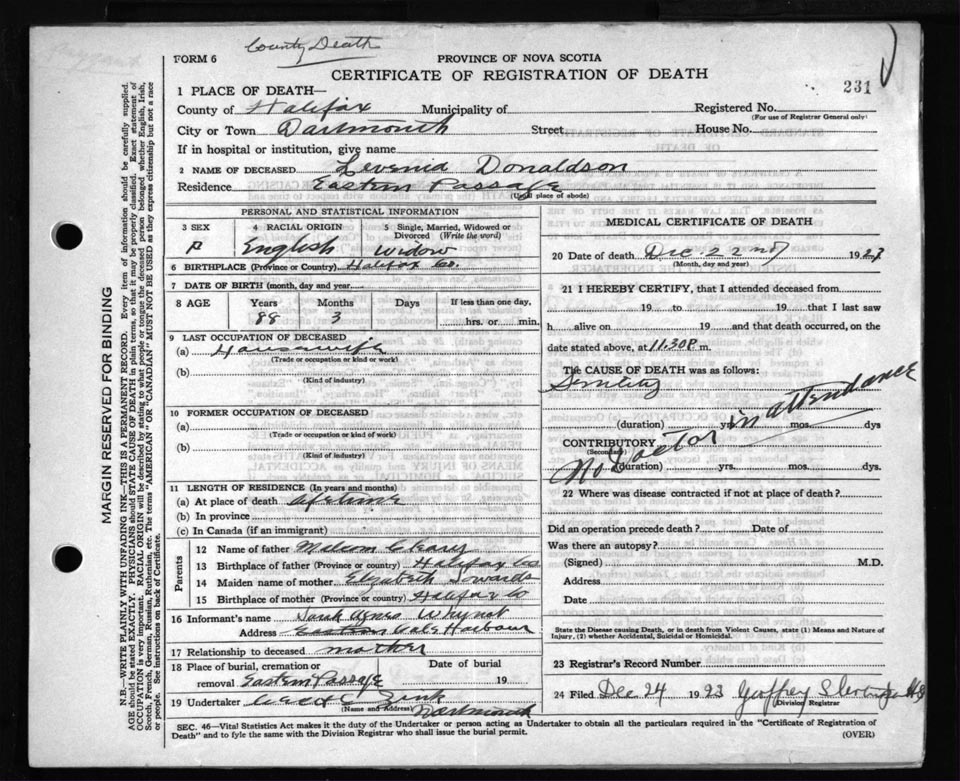 County Death
FORM 6
PROVINCE OF NOVA SCOTIA
CERTIFICATE OF REGISTRATION OF DEATH
231
1 PLACE OF DEATH—
County of Halifax Municipality of Registered No.
(For use of Registrar General only)
City or Town Dartmouth Street House No.
If in hospital or institution, give name
2 NAME OF DECEASED Levenia Donaldson
Residence Eastern Passage
(Usual place of abode)
PERSONAL AND STATISTICAL INFORMATION
3 SEX 4 RACIAL ORIGIN 5 Single, Married, Widowed or Divorced (Write the word)
English Widow
6 BIRTHPLACE (Province or Country) Halifax Co.
7 DATE OF BIRTH (month, day and year)
8 AGE Years Months Days If less than one day,
88 3 hrs. or min.
9 LAST OCCUPATION OF DECEASED
(a) Housewife
(Trade or occupation or kind or work)
(b)
(Kind of industry)
10 FORMER OCCUPATION OF DECEASED
(a)
(Trade or occupation or kind of work)
(b)
(Kind of industry)
11 LENGTH OF RESIDENCE (In years and months)
(a) At place of death Lifetime
(b) In province
(c) In Canada (if an immigrant)
Parents
12 Name of father Malcom
13 Birthplace of father (Province or country) Halifax Co
14 Maiden name of mother Elizabeth
15 Birthplace of mother (Province or country) Halifax Co
16 Informant's name Sarah Agnes Whynot
Address Eastern Harbour
17 Relationship to deceased mother
18 Place of burial, cremation or removal Eastern Passage Date of burial 19
19 Undertaker Zink
(Name and Address) Dartmouth
MEDICAL CERTIFICATE OF DEATH
20 Date of death Dec 22nd 1923
(Month, day and year)
21 I HEREBY CERTIFY, that I attended deceased from
19 to 19 that I last saw
h alive on 19 and that death occurred, on
date stated above, at 11.30 P. m.
The CAUSE OF DEATH was as follows:
Senility
(duration) yrs. mos. dys
CONTRIBUTORY
(Secondary)
No Doctor in attendance
(duration) yrs. mos. dys.
22 Where was disease contracted if not at place of death?
Did an operation precede death? Date of
Was there an autopsy?
(Signed) M.D.
Address
Date
State the Disease causing Death, or in death from Violent Causes, state (1) Means and Nature of Injury, (2) whether Accidental, Suicidal or Homicidal.
23 Registrar's Record Number
24 Filed Dec 24 1923 Geoffrey
(Division Registrar
SEC. 46—Vital Statistics Act makes it the duty of the Undertaker or person acting as Undertaker to obtain all the particulars required in the "Certificate of Registration of
Death" and to fyle the same with the Division Registrar who shall issue the burial permit.
(OVER)
MARGIN RESERVED FOR BINDING
N.B.—WRITE PLAINLY WITH UNFADING INK—THIS IS A PERMANENT RECORD. Every item of information should be carefully supplied.
AGE should be stated EXACTLY. PHYSICIANS should STATE CAUSE OF DEATH in plain terms, so that it may be properly classified. Exact statement of
OCCUPATION is very important. RACIAL ORIGIN will be described by stating to what people or tongue the deceased person belonged whether English, Irish,
Scotch, French, German, Russian, Ruthenian, etc. The terms "AMERICAN" OR "CANADIAN" MUST NOT BE USED as they express citizenship but not a race
or people. See instructions on back of Certificate.